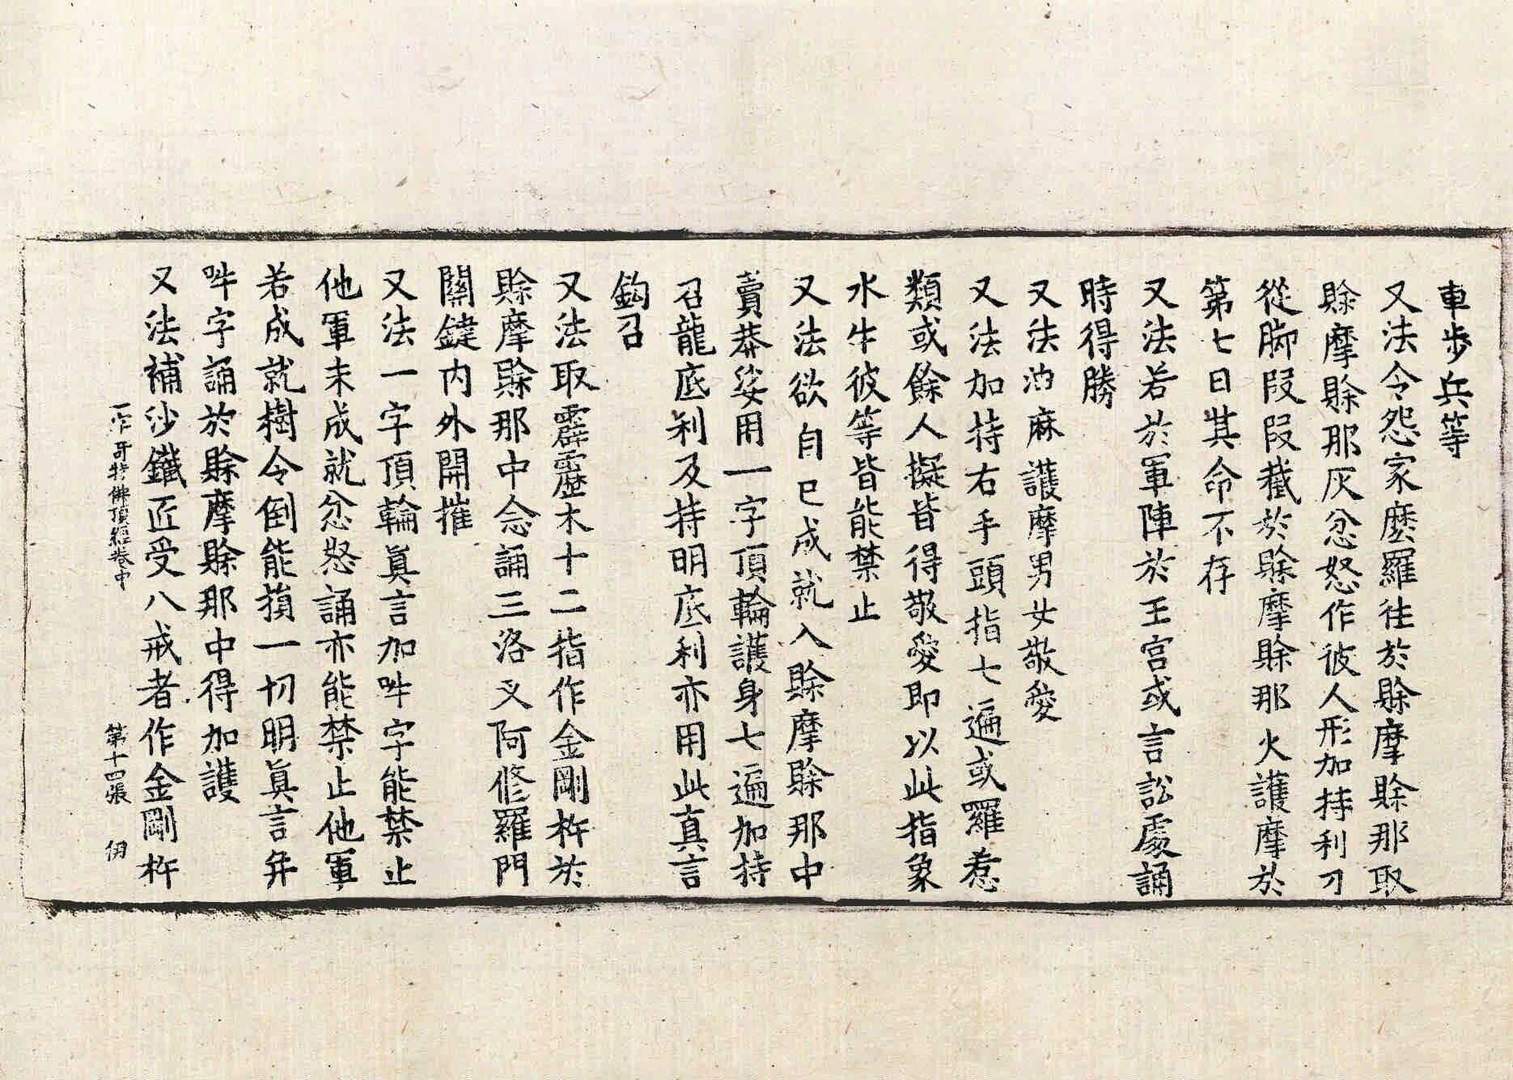 車步兵等
又法令怨家麼羅往於賒摩賒那取
賒摩賒那灰忿怒作彼人形加持利刀
從脚段段截於賒摩賒那火護摩於
第七日其命不存
又法若於軍陣於王宮或言訟處誦
時得勝
又法油麻護摩男女敬愛
又法加持右手頭指七遍或羅惹
類或餘人擬皆得敬愛即以此指象
水牛彼等皆能禁止
又法欲自已成就入賒摩賒那中
賣莽娑用一字頂輪護身七遍加持
召龍底利及持明底利亦用此真言
鈎召
又法取霹靂木十二指作金剛杵於
賒摩賒那中念誦三洛叉阿修羅門
關鍵內外開摧
又法一字頂輪真言加吽字能禁止
他軍未成就忿怒誦亦能禁止他軍
若成就樹令倒能損一切明真言并
吽字誦於賒摩賒那中得加護
又法補沙鐵匠受八戒者作金剛杵
一字奇特佛頂經卷中 第十四張 伊